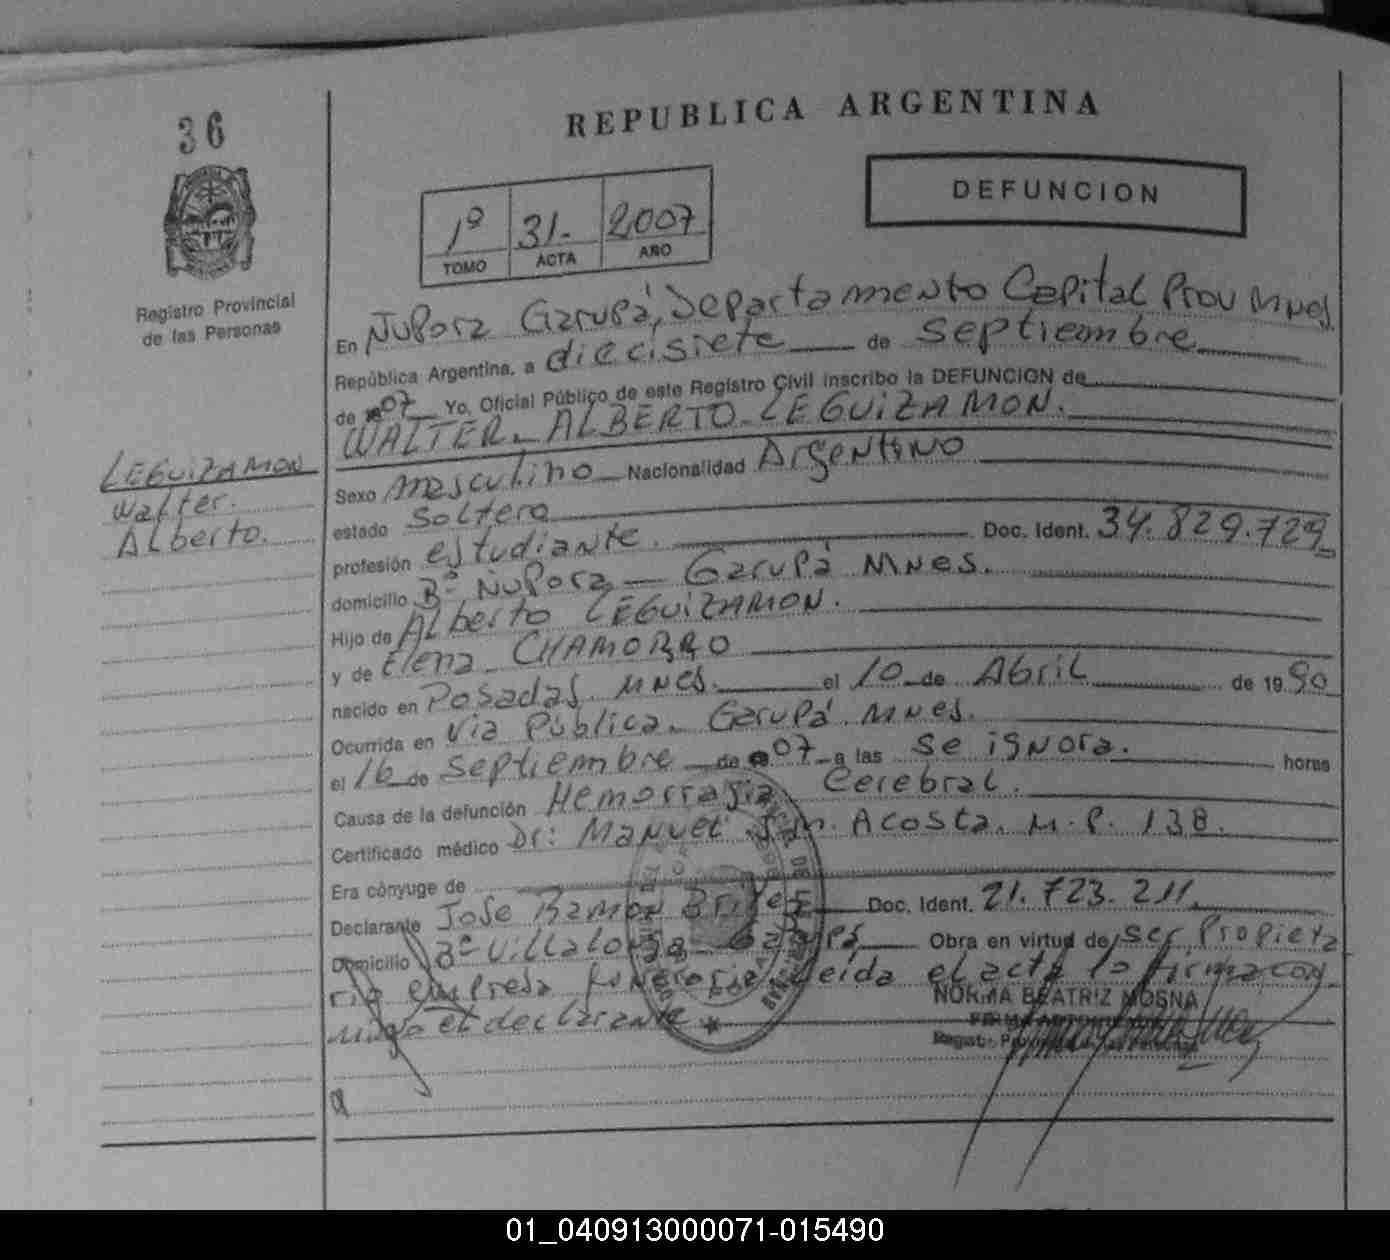 36
REPUBLICA ARGENTINA
DEFUNCION
1º 31- 2007
TOMO ACTA AÑO
Registro Provincial
de las Personas
En Ñuporá Garupá, Departamento Capital Prov Mnes
República Argentina, a diecisiete de septiembre
de 07 Yo, Oficial Público de este Registro Civil inscribo la DEFUNCION de
WALTER ALBERTO LEGUIZAMON.
LEGUIZAMON
Walter.
Alberto.
Sexo masculino Nacionalidad Argentino
estado Soltero
profesión estudiante. Doc. Ident. 34.829.729
domicilio Bº Ñuporá - Garupá Mnes.
Hijo de Alberto LEGUIZAMON.
y de Elena CHAMORRO
nacido en Posadas Mnes. el 10 de Abril de 1990
Ocurrida en Via Pública. Garupá Mnes.
el 16 de septiembre de 07 a las se ignora. horas
Causa de la defunción Hemorragia Cerebral.
Certificado médico Dr: Manuel Acosta. M.P. 138.
Era cónyuge de
Declarante José Ramon Doc. Ident. 21.723.211
Domicilio Bº Villalonga Garupá Obra en virtud de ser Propieta
rio empresa funeraria Leida el acta la firma con
migo el declarante
NORMA BEATRIZ MOSNA
01_040913000071-015490